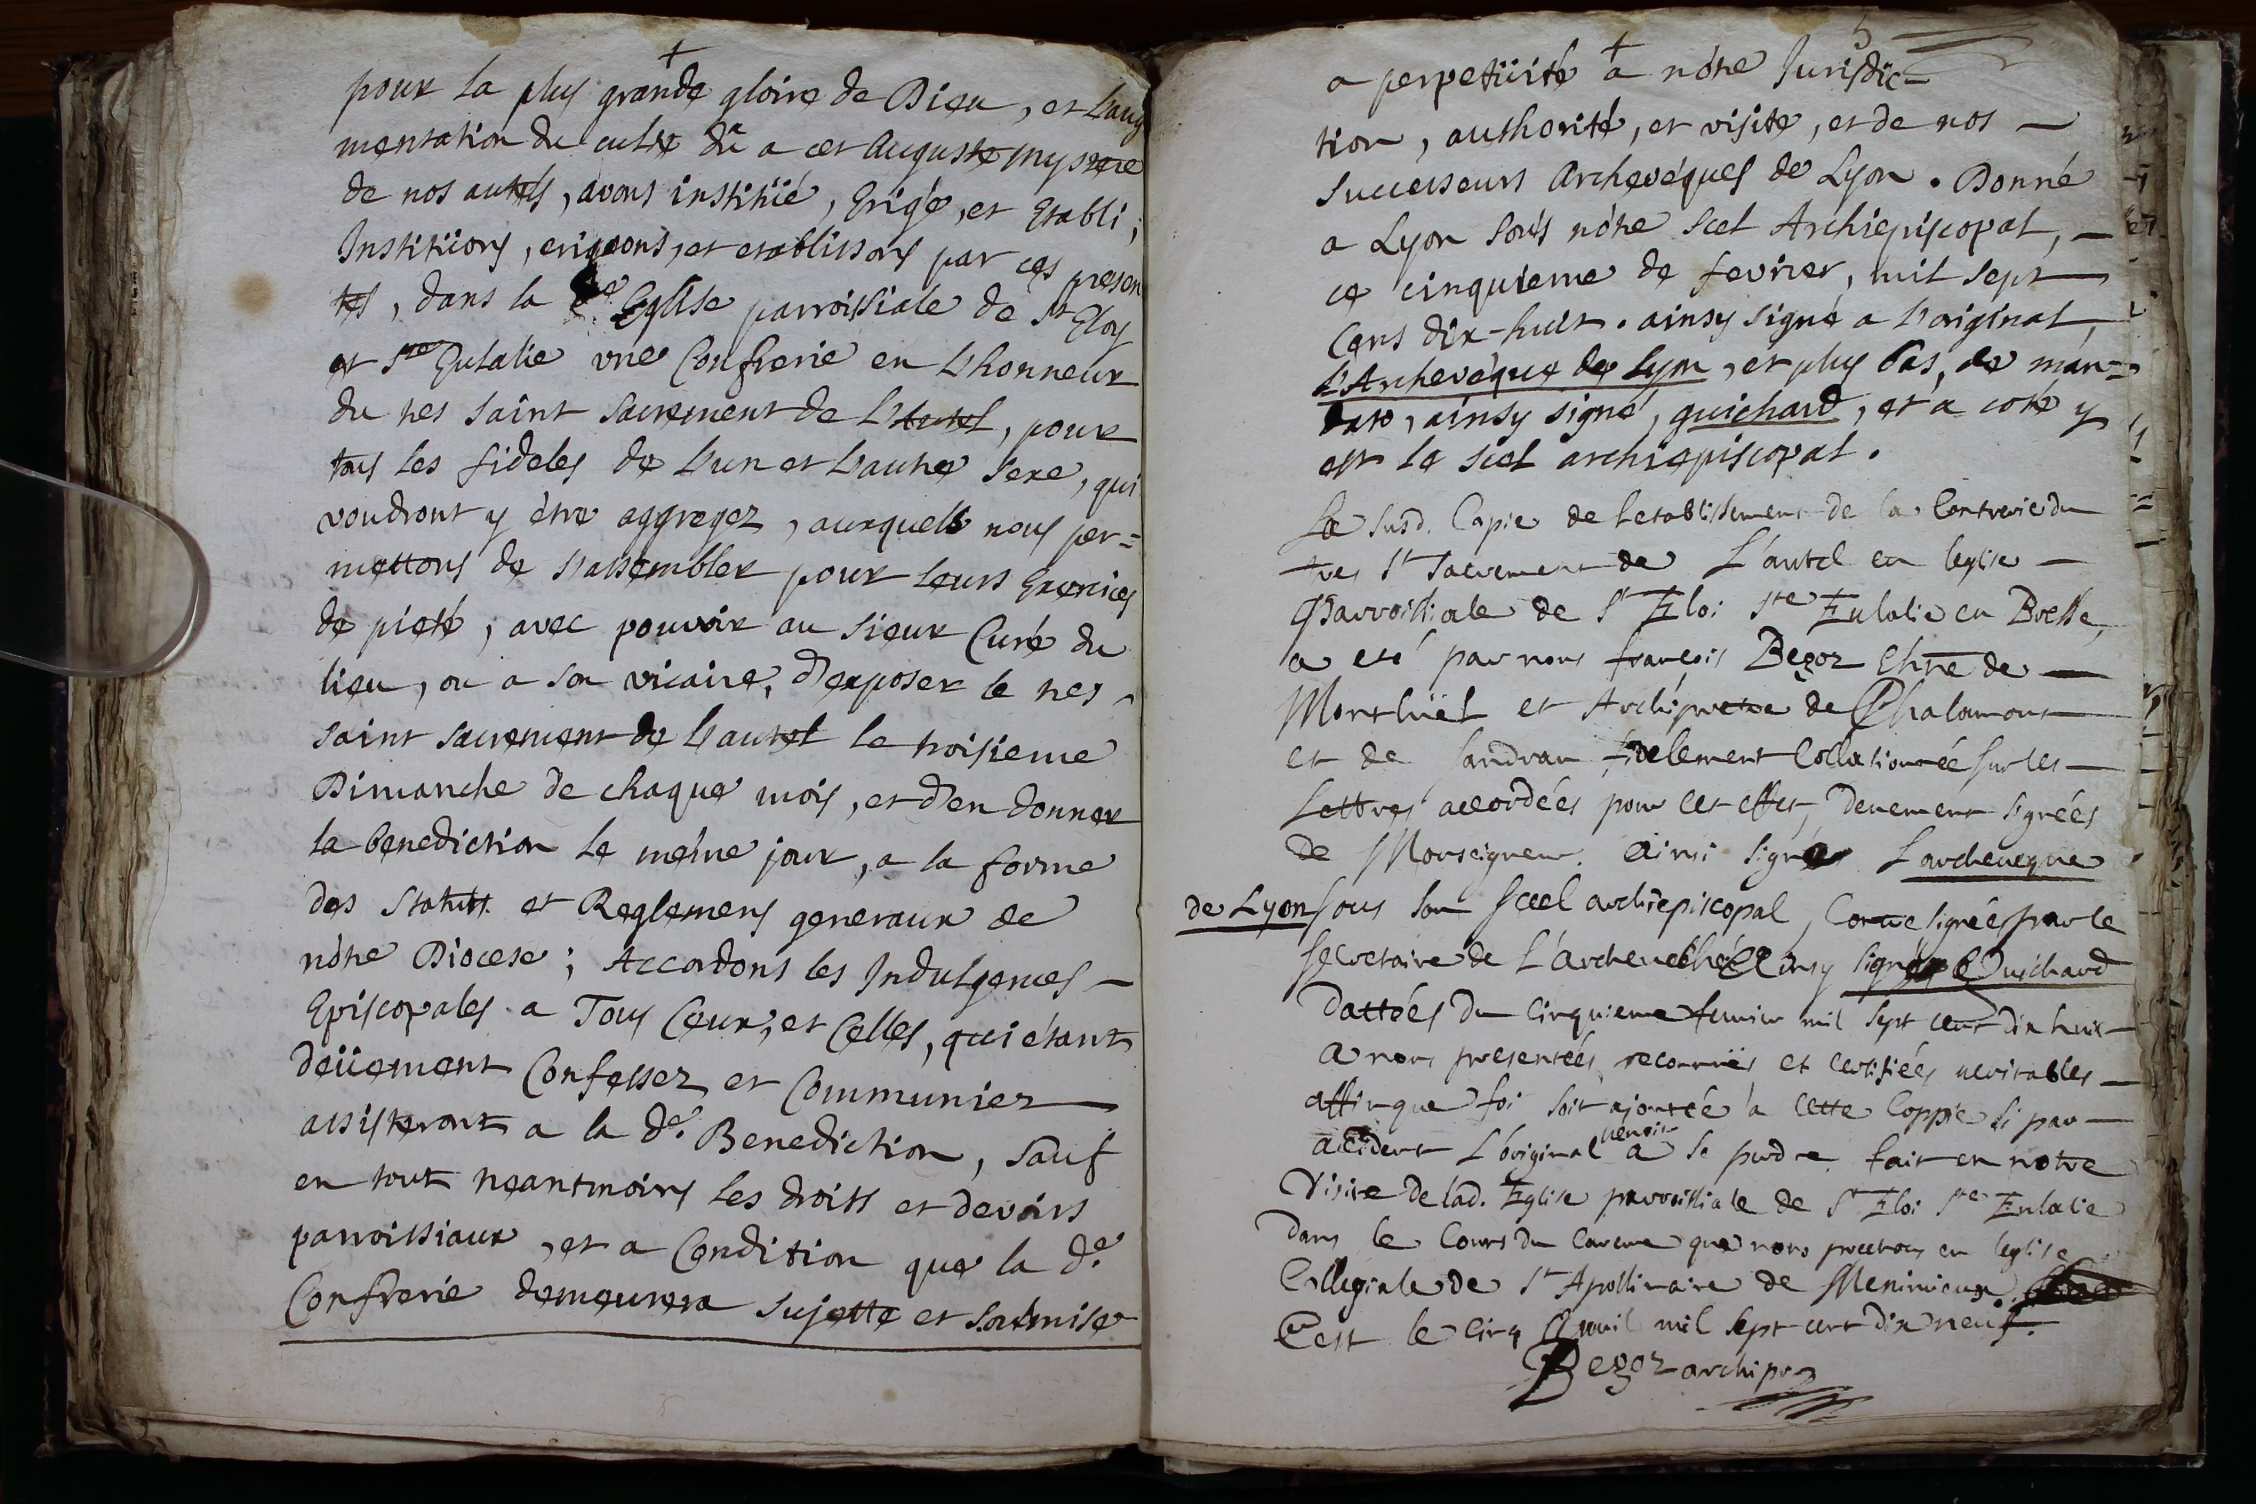 +
pour la plus grande gloire de Dieu, et l'aug
mentation du culte dû a cet auguste mystere
de nos autels, avons institüé, Erigé, et Etabli;
Institüons, erigeons, et etablissons par ces presen
tes, dans la de. Eglise parroissiale de St Eloy
et Ste Eulalie une Confrerie en L'honneur
du tres saint sacrement de L'Autel, pour
tous les fideles de L'un et L'autre sexe, qui
voudront y être aggregez, auxquels nous per=
mettons de s'assembler pour leurs Exercices
de pieté, avec pouvoir au sieur Curé du
lieu, ou a son vicaire, d'exposer le tres
saint sacrement de L'autel le troisieme
Dimanche de chaque mois, et d'en donner
la benediction le même jour, a la forme
des Statuts et Reglemens generaux de
nôtre Diocese; Accordons les Indulgences
Episcopales a Tous Ceux, et Celles, qui étant
deüement Confessez et Communiez
assisteront a la de. Benediction, sauf
en tout neantmoins les droits et devoirs
parroissiaux, et a Condition que la de.
Confrerie demeurera sujette et soumise
5
+
a perpetüité a nôtre Jurisdic-
tion, authorité, et visite, et de nos
successeurs Archevêques de Lyon. Donné
a Lyon sous nôtre scel Archiepiscopal,
ce cinquieme de fevrier, mil sept
Cens dix-huit. ainsy signé a L'original,
L'Archevêque de Lyon, et plus bas, de man=
dato, ainsy signé, guichard, et a coté y
est le scel archiepiscopal.
La susd. Copie de l'etablissement de la Confrerie du
tres St Sacrement de L'autel en leglise
Parroissiale de St Eloi Ste Eulalie en Bresse,
a eté par nous françois Begoz Chne de
Montlüel et Archipretre de Chalamont
et de Sandran fidelement Collationnée sur les
Lettres accordées pour cet effet, Deuement signées
de Monseigneur. ainsi signé Larcheveque
de Lyon sous son Scel archiepiscopal, Contresignées par le
secretaire de L'archeveché Ainsy signé Guichard
Dattées du Cinquieme fevrier mil Sept cent dix huit
a nous presentées, reconnües et certifiées veritables
affin que foi soit ajoutée a cette Coppie si par
accident L'original venoit a se perdre. fait en notre
Visite de lad. Eglise parroissiale de St Eloi Ste Eulalie
dans le Cours du Careme que nous prechons en leglise
Collegiale de St Apollinaire de Meximieux.
C'est le Cinq Avril mil sept cent dix neuf.
Begoz archipre